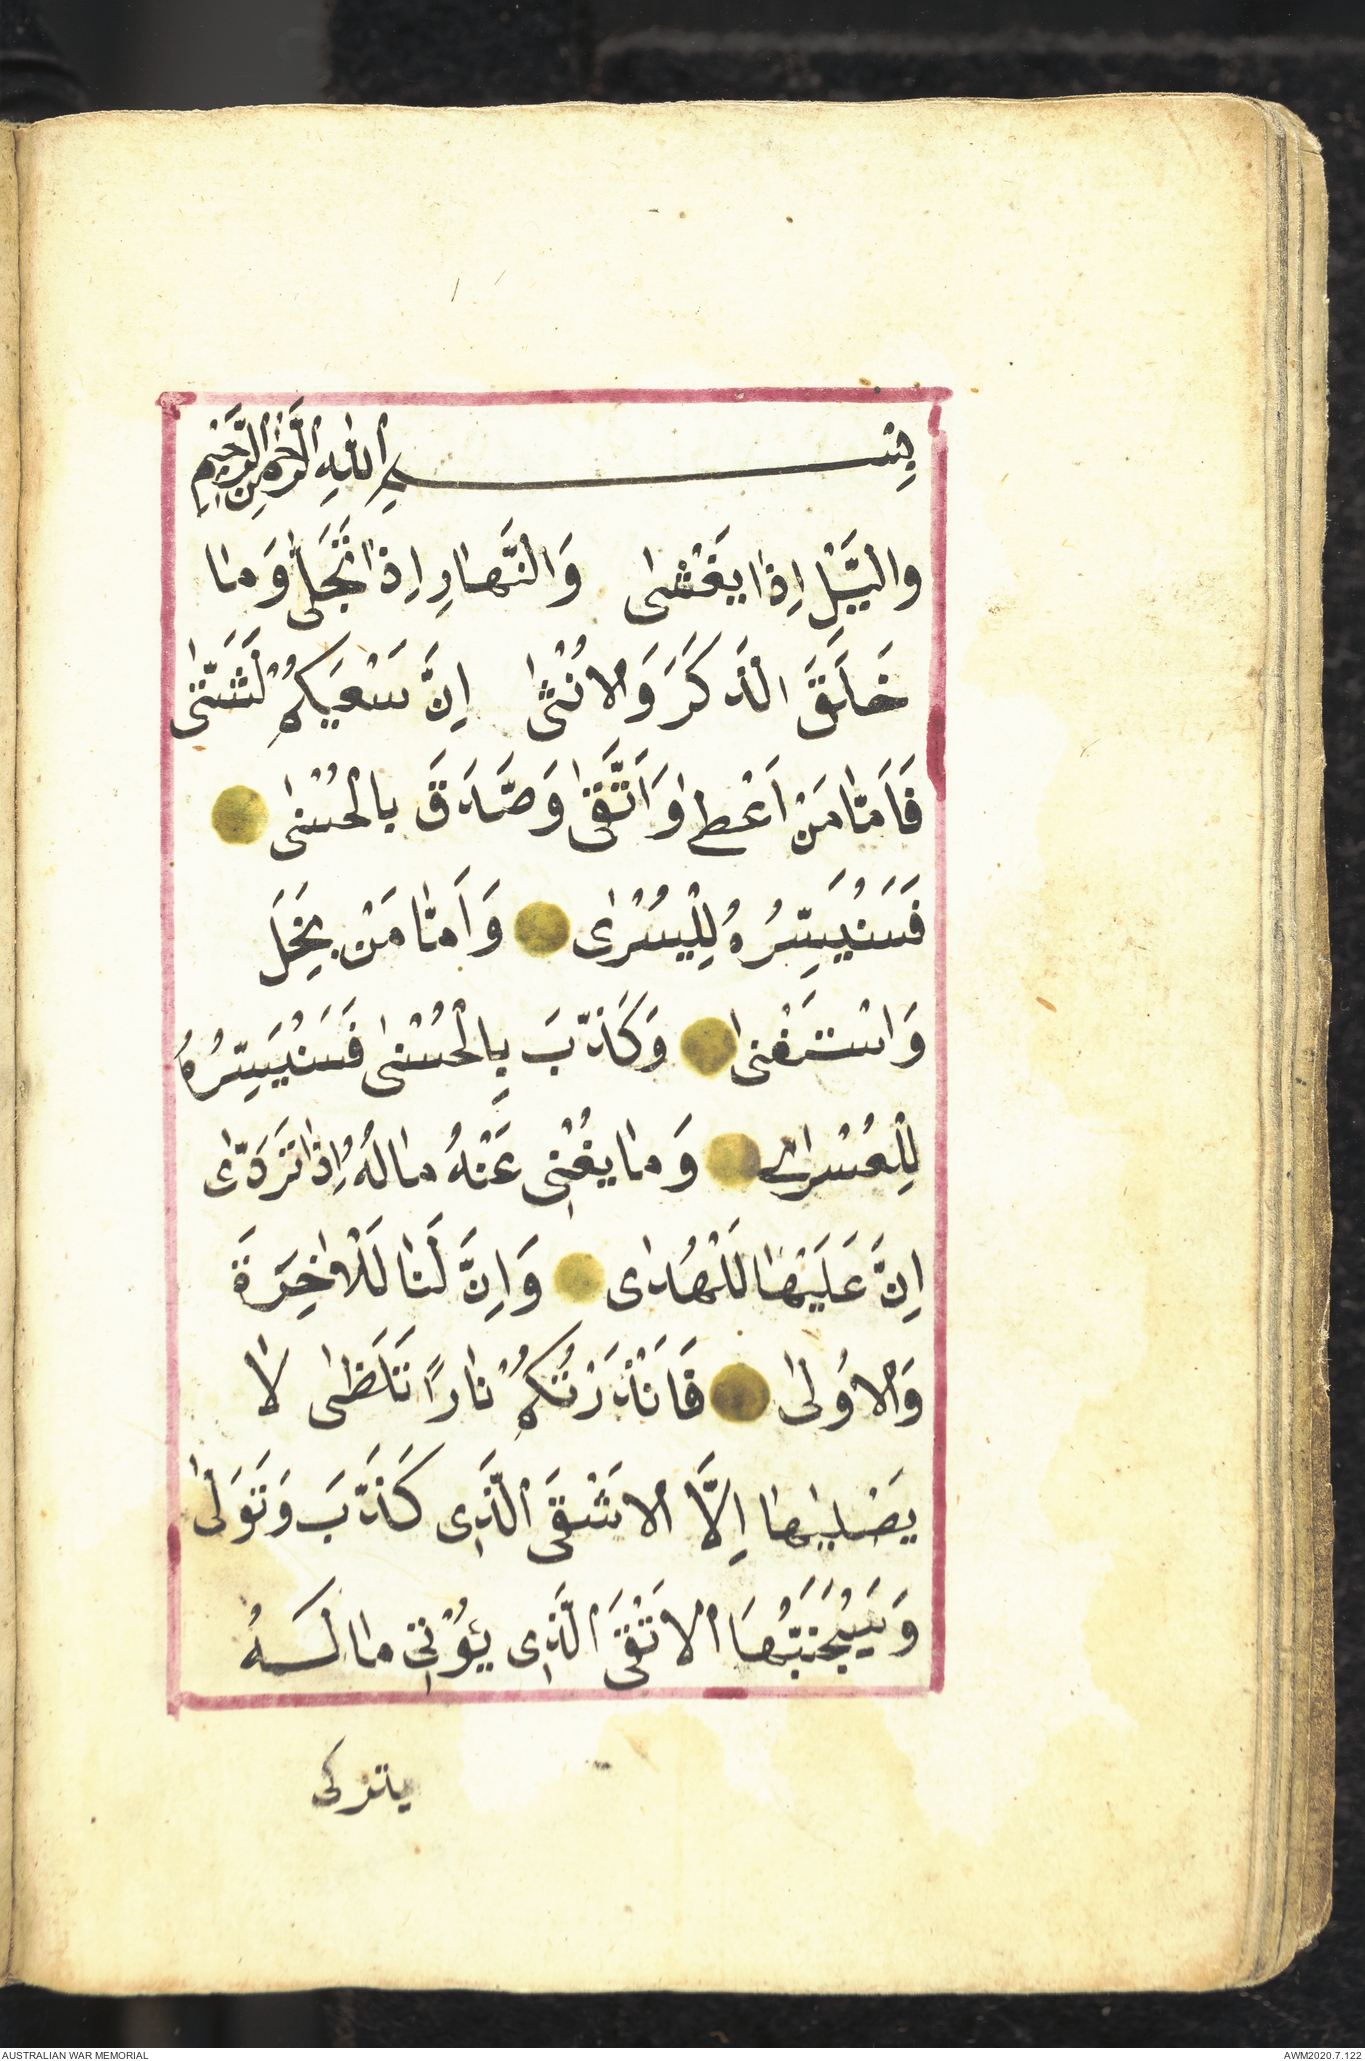 بِسْمِ اللّٰهِ الرَّحْمٰنِ الرَّحٖيمِ
والَّيْلِ اِذٰا يَغْشىٰ وَالنَّهٰارِ اِذٰا تَجَلىّٰ وَمٰا
خَلَقَ الذَكَرَ وَالاُنْثىٰ اِنَّ سَعْيَكُمْ لَشَتّىٰ
فَاَمّٰا مَنْ اَعْطىٰ وَاَتَّقىٰ وَصَّدَقَ بالْحُسْنىٰ
فَسَنُيَسِّرُهُ لِلْيُسْرٰى وَاَمّٰا مَنْ بَخِلَ
وَاسْتَغْنىٰ وَكَذّبَ بِالْحُسْنىٰ فَسَنُيَسِّرُهُ
لِلْعُسْرٰى وَمٰا يغْنٖى عَنْهُ مٰالُهُ اِذٰا تَرَدّٰى
اِنَّ عَلَيْهٰا لَلْهُدٰى وَاِنَّ لَنٰا لَلْاٰخِرَةَ
وَالاوُلىٰ فَاَنْذَرْتُكُمْ نٰارًا تَلَظىّٰ لٰا
يَصْليٰهٰا اِلَّا الاَشْقَى الَّذٖى كَذّبَ وَتَوَلىّٰ
وَسَيُجَنَّبُهَا الاَتْقَى الَّذٖى يُؤْتٖى مٰالَهُ
يتزكى
AUSTRALIAN WAR MEMORIAL
AWM2020.7.122